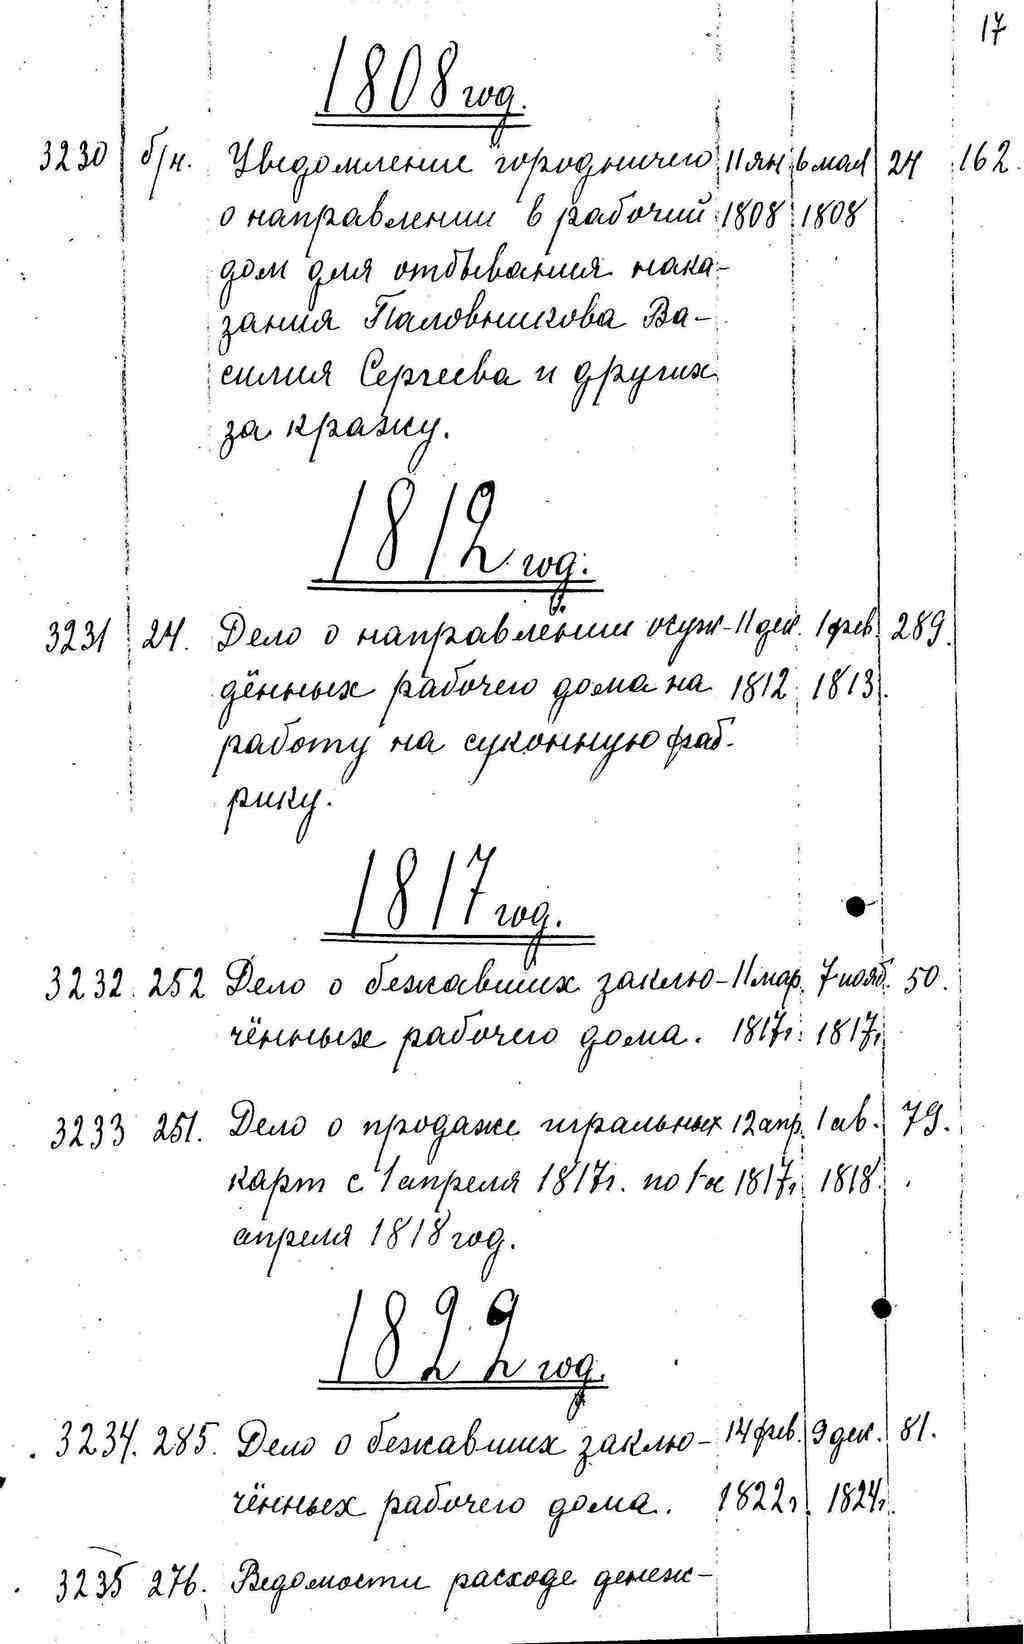 17
1808 год.
3230 б/н. Уведомление городничего 11 ян. 6 мая 24 162.
о направлении в рабочий 1808 1808
дом для отбывания нака-
зания Паловникова Ва-
силия Сергеева и других
за кражу.
1812 год.
3231 24. Дело о направлении осуж- 11 дек. 1 фев. 289.
дённых рабочего дома на 1812 1813.
работу на суконную фаб-
рику.
1817 год.
3232. 252 Дело о бежавших заклю- 11 мар. 7 нояб. 50.
чённых рабочего дома. 1817г. 1817г.
3233 251. Дело о продаже игральных 12 апр. 1 ав. 79.
карт с 1 апреля 1817г. по 1-е 1817г. 1818.
апреля 1818 год.
1822 год.
3234. 285. Дело о бежавших заклю- 14 фев. 9 дек. 81.
чённых рабочего дома. 1822г. 1824г.
3235 276. Ведомости расходе денеж-